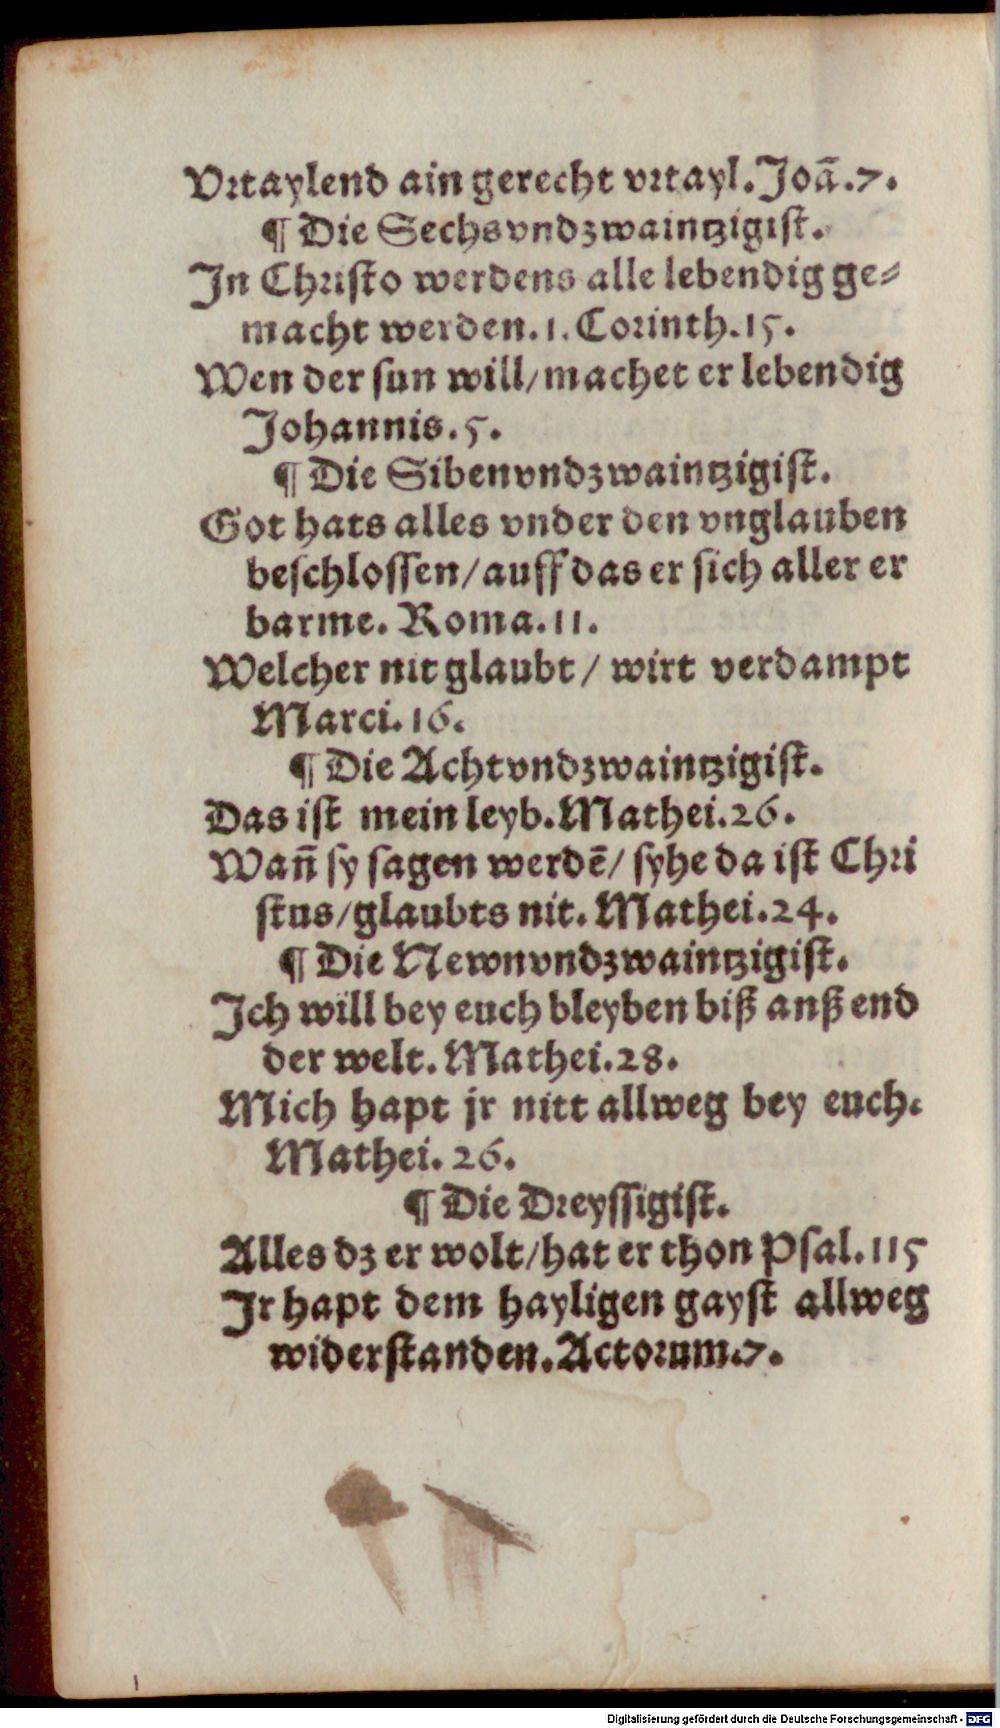 Vrtaylend ain gerecht vrtayl. Joā .7.
¶ Die Sechsvndzwaintzigist.
In Christo werdens alle lebendig ge⸗
macht werden. 1. Corinth. 15.
Wen der sun will/ machet er lebendig
Johannis. 5.
¶ Die Sibenvndzwaintzigist.
Got hats alles vnder den vnglauben
beschlossen/ auff das er sich aller er
barme. Roma. 11.
Welcher nit glaubt/ wirt verdampt
Marci. 16.
¶ Die Achtvndzwaintzigist.
Das ist mein leyb. Mathei. 26.
Wañ sy sagen werdē/ syhe da ist Chri
stus/ glaubts nit. Mathei. 24.
¶ Die Newnvndzwaintzigist.
Ich will bey euch bleyben biß anß end
der welt. Mathei. 28.
Mich hapt jr nitt allweg bey euch.
Mathei. 26.
¶ Die Dreyssigist.
Alles dz er wolt/ hat er thon Psal. 115
Ir hapt dem hayligen gayst allweg
widerstanden. Actorum .7.
Digitalisierung gefördert durch die Deutsche Forschungsgemeinschaft - DFG